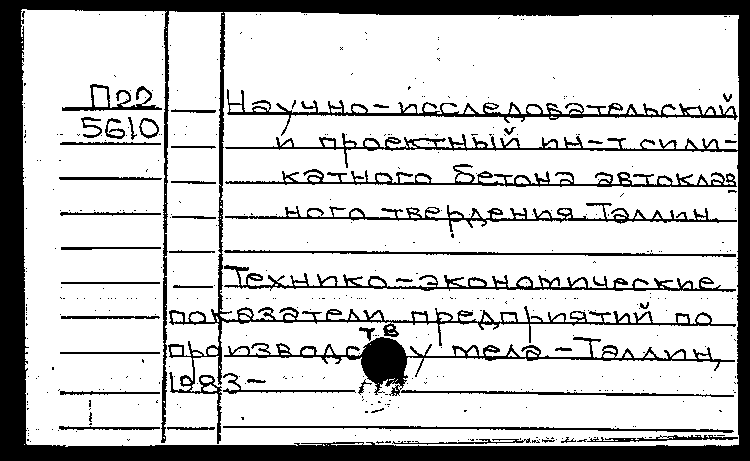 Пдд
5610
Научно-исследовательский
и проектный ин-т сили-
катного бетона автоклав
ного твердения. Таллин.
Технико-экономические
показатели предприятий по
производству мела. - Таллин,
1983-